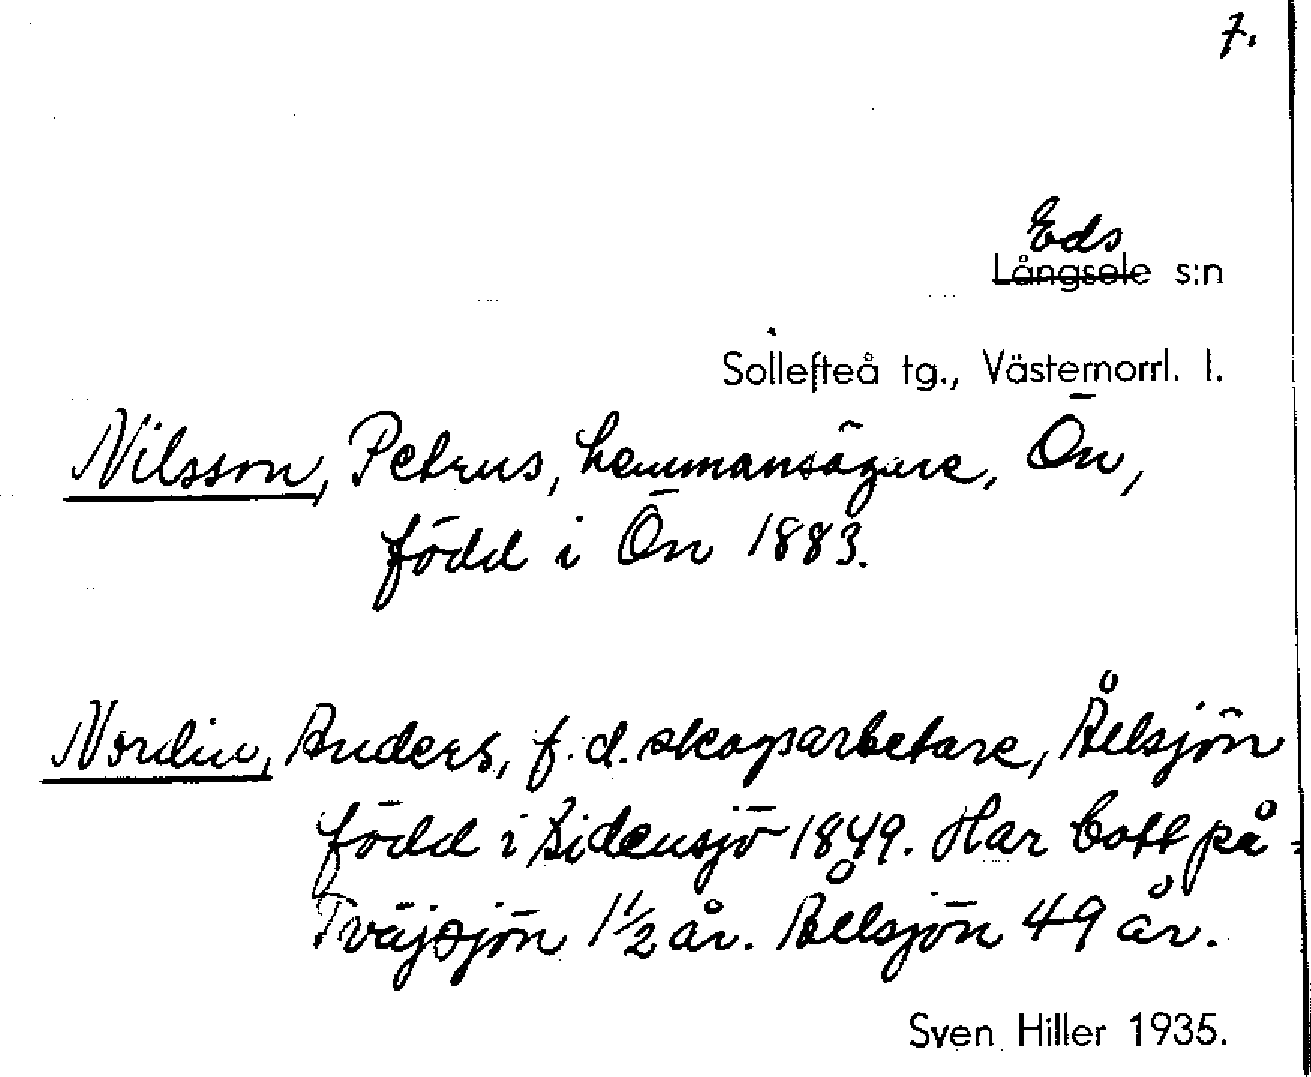 7.
Eds
Långsele s:n
Sollefteå tg., Västernorrl. l.
Nilsson, Petrus, hemmansägare, Ön,
född i Ön 1883.
Nordin, Anders, f.d. skogsarbetare, Ålsjön
född i Bidensjö 1849. Har bott på
Tväjsjön 1 1/2 år. Ålsjön 49 år.
Sven Hiller 1935.